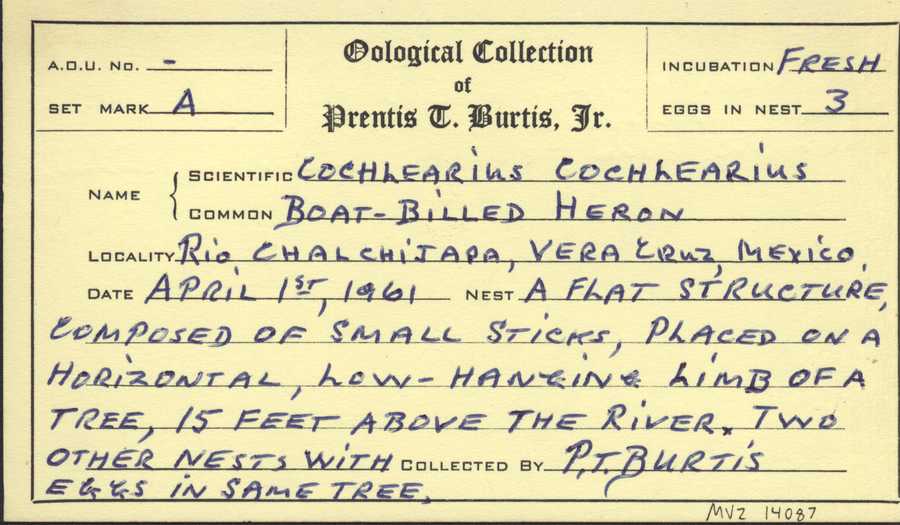 A.O.U. No. -
SET MARK A
Oological Collection
of
Prentis T. Burtis, Jr.
INCUBATION FRESH
EGGS IN NEST 3
NAME
SCIENTIFIC COCHLEARIUS COCHLEARIUS
COMMON BOAT-BILLED HERON
LOCALITY RIO CHALCHIJAPA, VERA CRUZ, MEXICO.
DATE APRIL 1ST, 1961 NEST A FLAT STRUCTURE,
COMPOSED OF SMALL STICKS, PLACED ON A
HORIZONTAL, LOW-HANGING LIMB OF A
TREE, 15 FEET ABOVE THE RIVER. TWO
OTHER NESTS WITH COLLECTED BY P.T. BURTIS
EGGS IN SAME TREE.
MVZ 14087